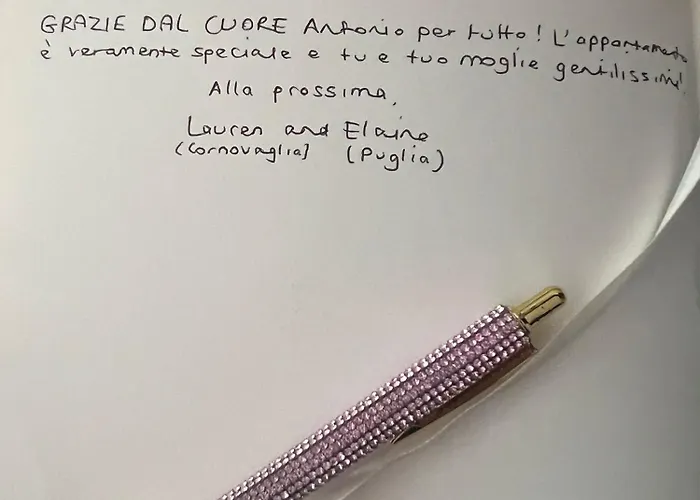 GRAZIE DAL CUORE Antonio per tutto! L'appartamento
è veramente speciale e tu e tuo moglie gentilissimi!
Alla prossima,
Lauren and Elaine
(Cornovaglia) (Puglia)